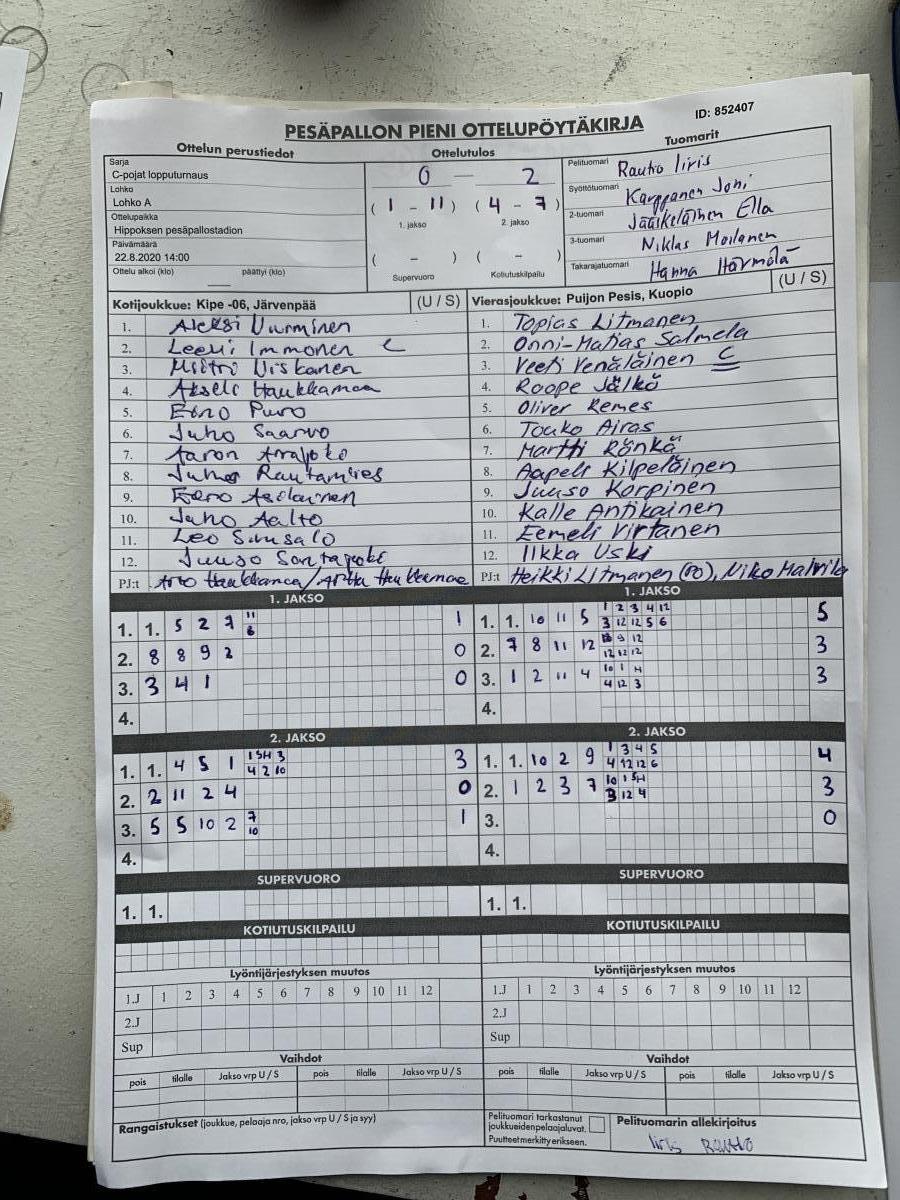 ID: 852407
PESÄPALLON PIENI OTTELUPÖYTÄKIRJA
Ottelun perustiedot
Ottelutulos
Tuomarit
Sarja
C-pojat lopputurnaus
Lohko
Lohko A
Ottelupaikka
Hippoksen pesäpallostadion
Päivämäärä
22.8.2020 14:00
Ottelu alkoi (klo) päättyi (klo)
0 — 2
( 1 - 11 ) ( 4 - 7 )
1. jakso 2. jakso
( - ) ( - )
Supervuoro Kotiutuskilpailu
Pelituomari Rautio Iiris
Syöttötuomari Karppanen Joni
2-tuomari Jääskeläinen Ella
3-tuomari Niklas Moilanen
Takarajatuomari Hanna Härmälä
Kotijoukkue: Kipe -06, Järvenpää (U / S)
1. Aleksi Vurminen
2. Leevi Immonen C
3. Miitri Niskanen
4. Akseli Haukkamaa
5. Eero Puro
6. Juho Saarvo
7. Aaron Arrajoki
8. Rautamies
9. Eero
10. Juho Aalto
11. Leo Sinisalo
12. Juuso Santapukki
PJ:t Arto Haukkamaa/Arttu Haukkamaa
Vierasjoukkue: Puijon Pesis, Kuopio (U / S)
1. Topias Litmanen
2. Onni-Matias Salmela
3. Veeti Venäläinen C
4. Roope Jälkö
5. Oliver Remes
6. Touko Airas
7. Martti Rönkä
8. Aapeli Kilpeläinen
9. Juuso Korpinen
10. Kalle Antikainen
11. Eemeli Virtanen
12. Ilkka Uski
PJ:t Heikki Litmanen (PO), Niko
1. JAKSO
1. 1. 5 2 7 11 6 1
2. 8 8 9 2 0
3. 3 4 1 0
4.
1. JAKSO
1. 1. 10 11 5 1 2 3 4 12 5
3 12 12 5 6
2. 7 8 11 12 9 12 3
12 12 12
3. 1 2 11 4 10 1 H 3
4 12 3
4.
2. JAKSO
1. 1. 4 5 1 1 5H 3 3
4 2 10
2. 2 11 2 4 0
3. 5 5 10 2 7 1
10
4.
2. JAKSO
1. 1. 10 2 9 1 3 4 5 4
4 12 12 6
2. 1 2 3 7 10 1 5H 3
3 12 4
3. 0
4.
SUPERVUORO
1. 1.
SUPERVUORO
1. 1.
KOTIUTUSKILPAILU
KOTIUTUSKILPAILU
Lyöntijärjestyksen muutos
1.J 1 2 3 4 5 6 7 8 9 10 11 12
2.J
Sup
Lyöntijärjestyksen muutos
1.J 1 2 3 4 5 6 7 8 9 10 11 12
2.J
Sup
Vaihdot
pois tilalle Jakso vrp U / S pois tilalle Jakso vrp U / S
Vaihdot
pois tilalle Jakso vrp U / S pois tilalle Jakso vrp U / S
Rangaistukset (joukkue, pelaaja nro, jakso vrp U / S ja syy)
Pelituomari tarkastanut
joukkueiden pelaajaluvat.
Puutteet merkitty erikseen.
Pelituomarin allekirjoitus
Iiris Rautio